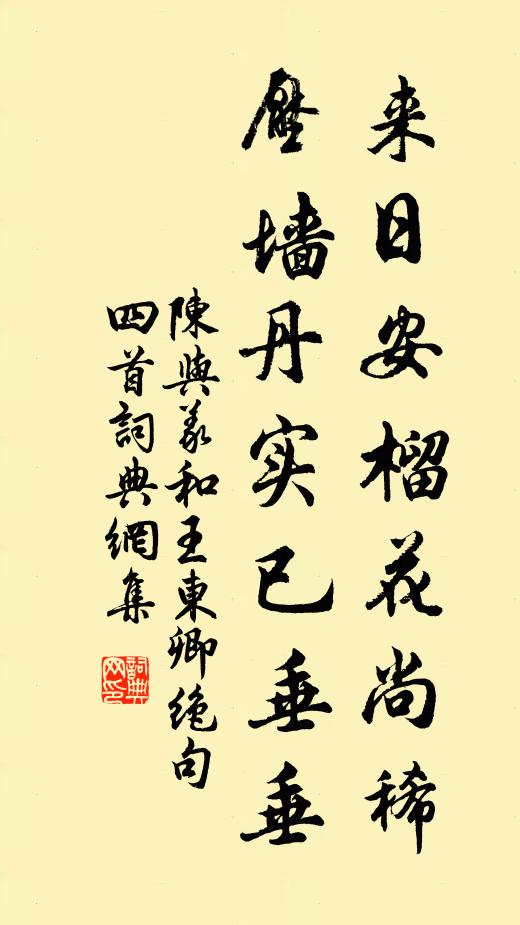 来日安榴花尚稀
壓墙丹实已垂垂
陳與義和王東卿绝句
四首詞典網集
詞典网印